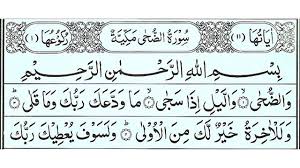 اٰيَاتُهَا (١١) سُوْرَةُ الضُّحٰى مَكِّيَّةٌ رُكُوْعُهَا (١)
بِسْمِ اللهِ الرَّحْمٰنِ الرَّحِيْمِ
وَالضُّحٰى ۙ وَالَّيْلِ اِذَا سَجٰى ۙ مَا وَدَّعَكَ رَبُّكَ وَمَا قَلٰى ؕ
وَلَلْاٰخِرَةُ خَيْرٌ لَّكَ مِنَ الْاُوْلٰى ؕ وَلَسَوْفَ يُعْطِيْكَ رَبُّكَ